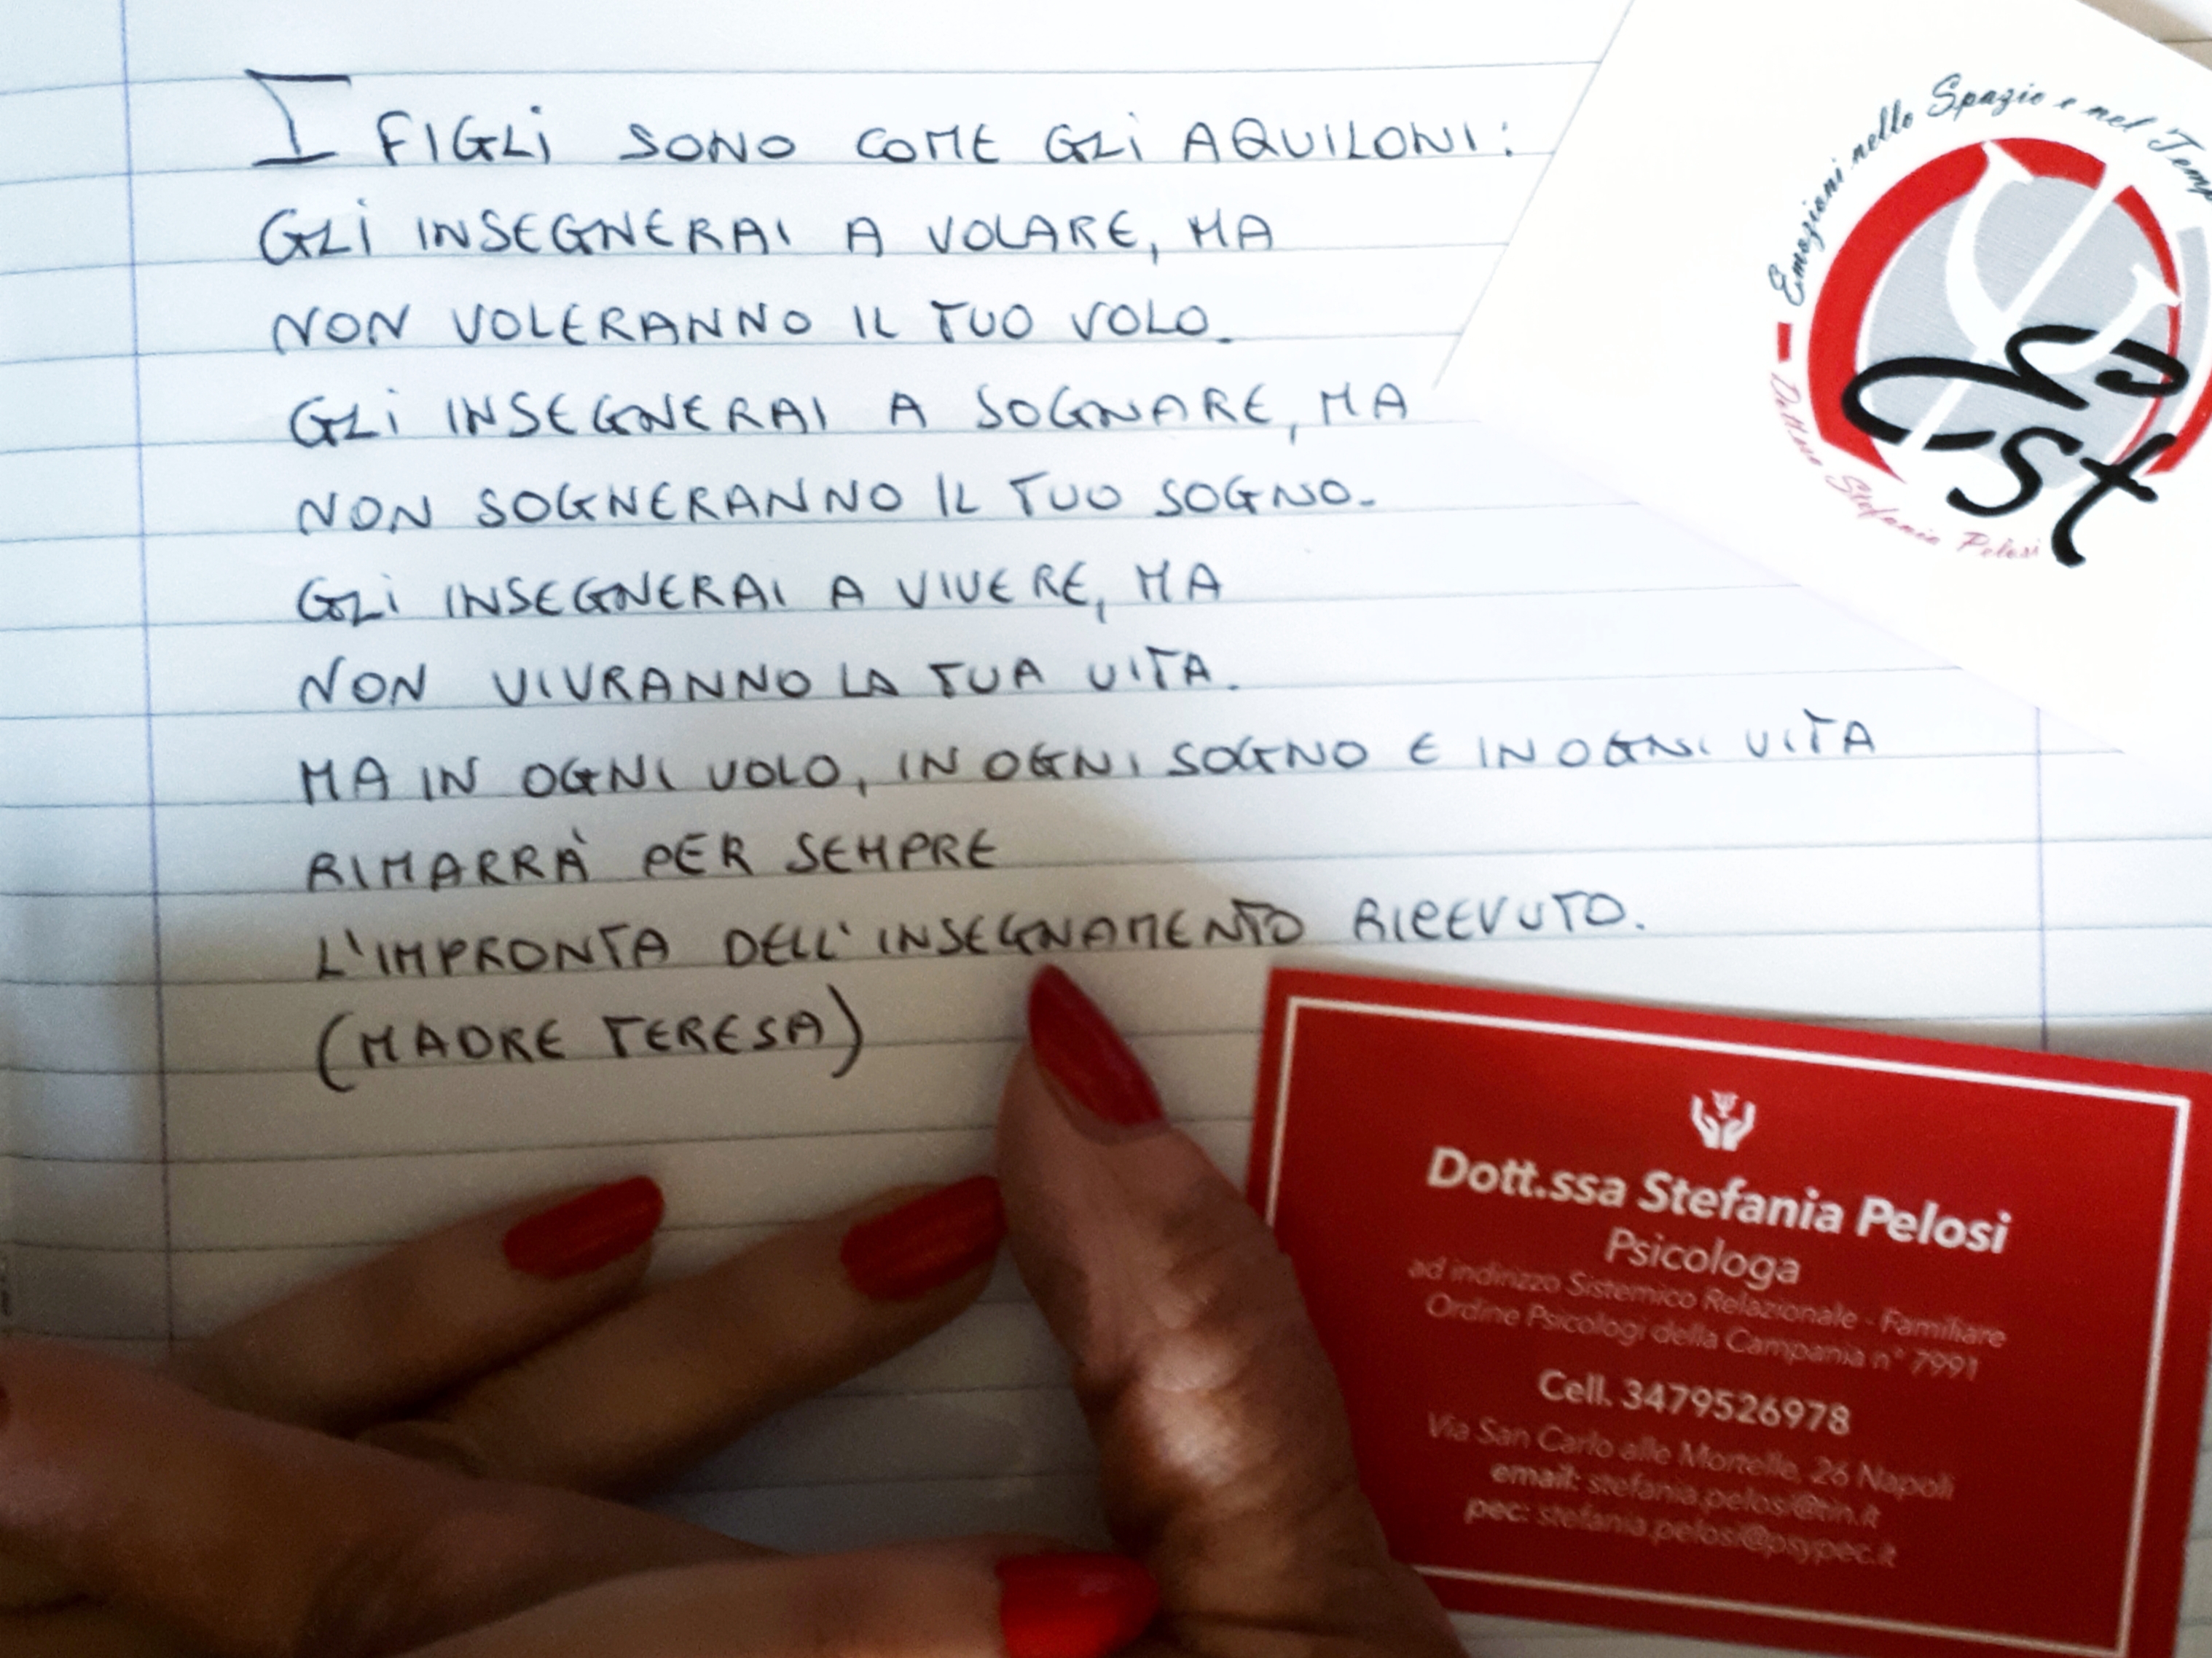 I FIGLI SONO COME GLI AQUILONI:
GLI INSEGNERAI A VOLARE, MA
NON VOLERANNO IL TUO VOLO.
GLI INSEGNERAI A SOGNARE, MA
NON SOGNERANNO IL TUO SOGNO.
GLI INSEGNERAI A VIVERE, MA
NON VIVRANNO LA TUA VITA.
MA IN OGNI VOLO, IN OGNI SOGNO E IN OGNI VITA
RIMARRÀ PER SEMPRE
L'IMPRONTA DELL'INSEGNAMENTO RICEVUTO.
(MADRE TERESA)
Emozioni nello Spazio e nel Temp
st
Stefania Pelosi
Dott.ssa Stefania Pelosi
Psicologa
ad indirizzo Sistemico Relazionale - Familiare
Ordine Psicologi della Campania n° 7991
Cell. 3479526978
Via San Carlo alle Mortelle, 26 Napoli
email: stefania.pelosi@tin.it
pec: stefania.pelosi@psypec.it